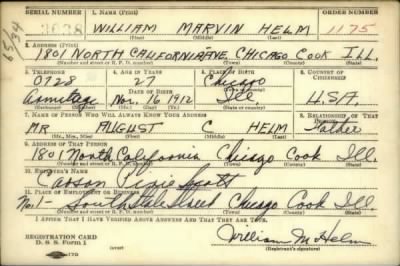 SERIAL NUMBER 1. NAME (Print) ORDER NUMBER
WILLIAM MARVIN HELM 1175
2. ADDRESS (Print)
1801 NORTH CALIFORNIA AVE. CHICAGO COOK ILL.
3. TELEPHONE 4. AGE IN YEARS 5. PLACE OF BIRTH 6. COUNTRY OF CITIZENSHIP
0728 27 Chicago
DATE OF BIRTH
Armitage Nov. 16 1912 Ill U.S.A.
7. NAME OF PERSON WHO WILL ALWAYS KNOW YOUR ADDRESS 8. RELATIONSHIP OF THAT PERSON
MR AUGUST C HELM Father
(Mr., Mrs., Miss) (First) (Middle) (Last)
9. ADDRESS OF THAT PERSON
1801 North California Chicago Cook Ill.
(Number and street or R. F. D. number) (Town) (County) (State)
10. EMPLOYER'S NAME
Carson Pirie Scott
11. PLACE OF EMPLOYMENT OR BUSINESS
No. 1- South State Street Chicago Cook Ill
(Number and street or R. F. D. number) (Town) (County) (State)
I AFFIRM THAT I HAVE VERIFIED ABOVE ANSWERS AND THAT THEY ARE TRUE.
REGISTRATION CARD
D. S. S. Form 1
William M Helm
(Registrant's signature)